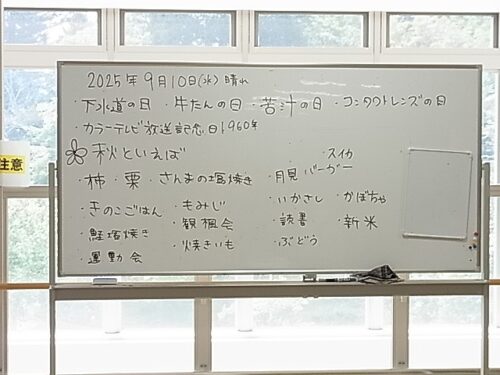 2025年9月10日(水)晴れ
・下水道の日 ・牛たんの日 ・苦汁の日 ・コンタクトレンズの日
・カラーテレビ放送記念日1960年
秋といえば
・スイカ
・柿 ・栗 ・さんまの塩焼き ・月見バーガー
・きのこごはん ・もみじ ・いかさし ・かぼちゃ
・鮭塩焼き ・観楓会 ・読書 ・新米
・運動会 ・焼きいも ・ぶどう
注意